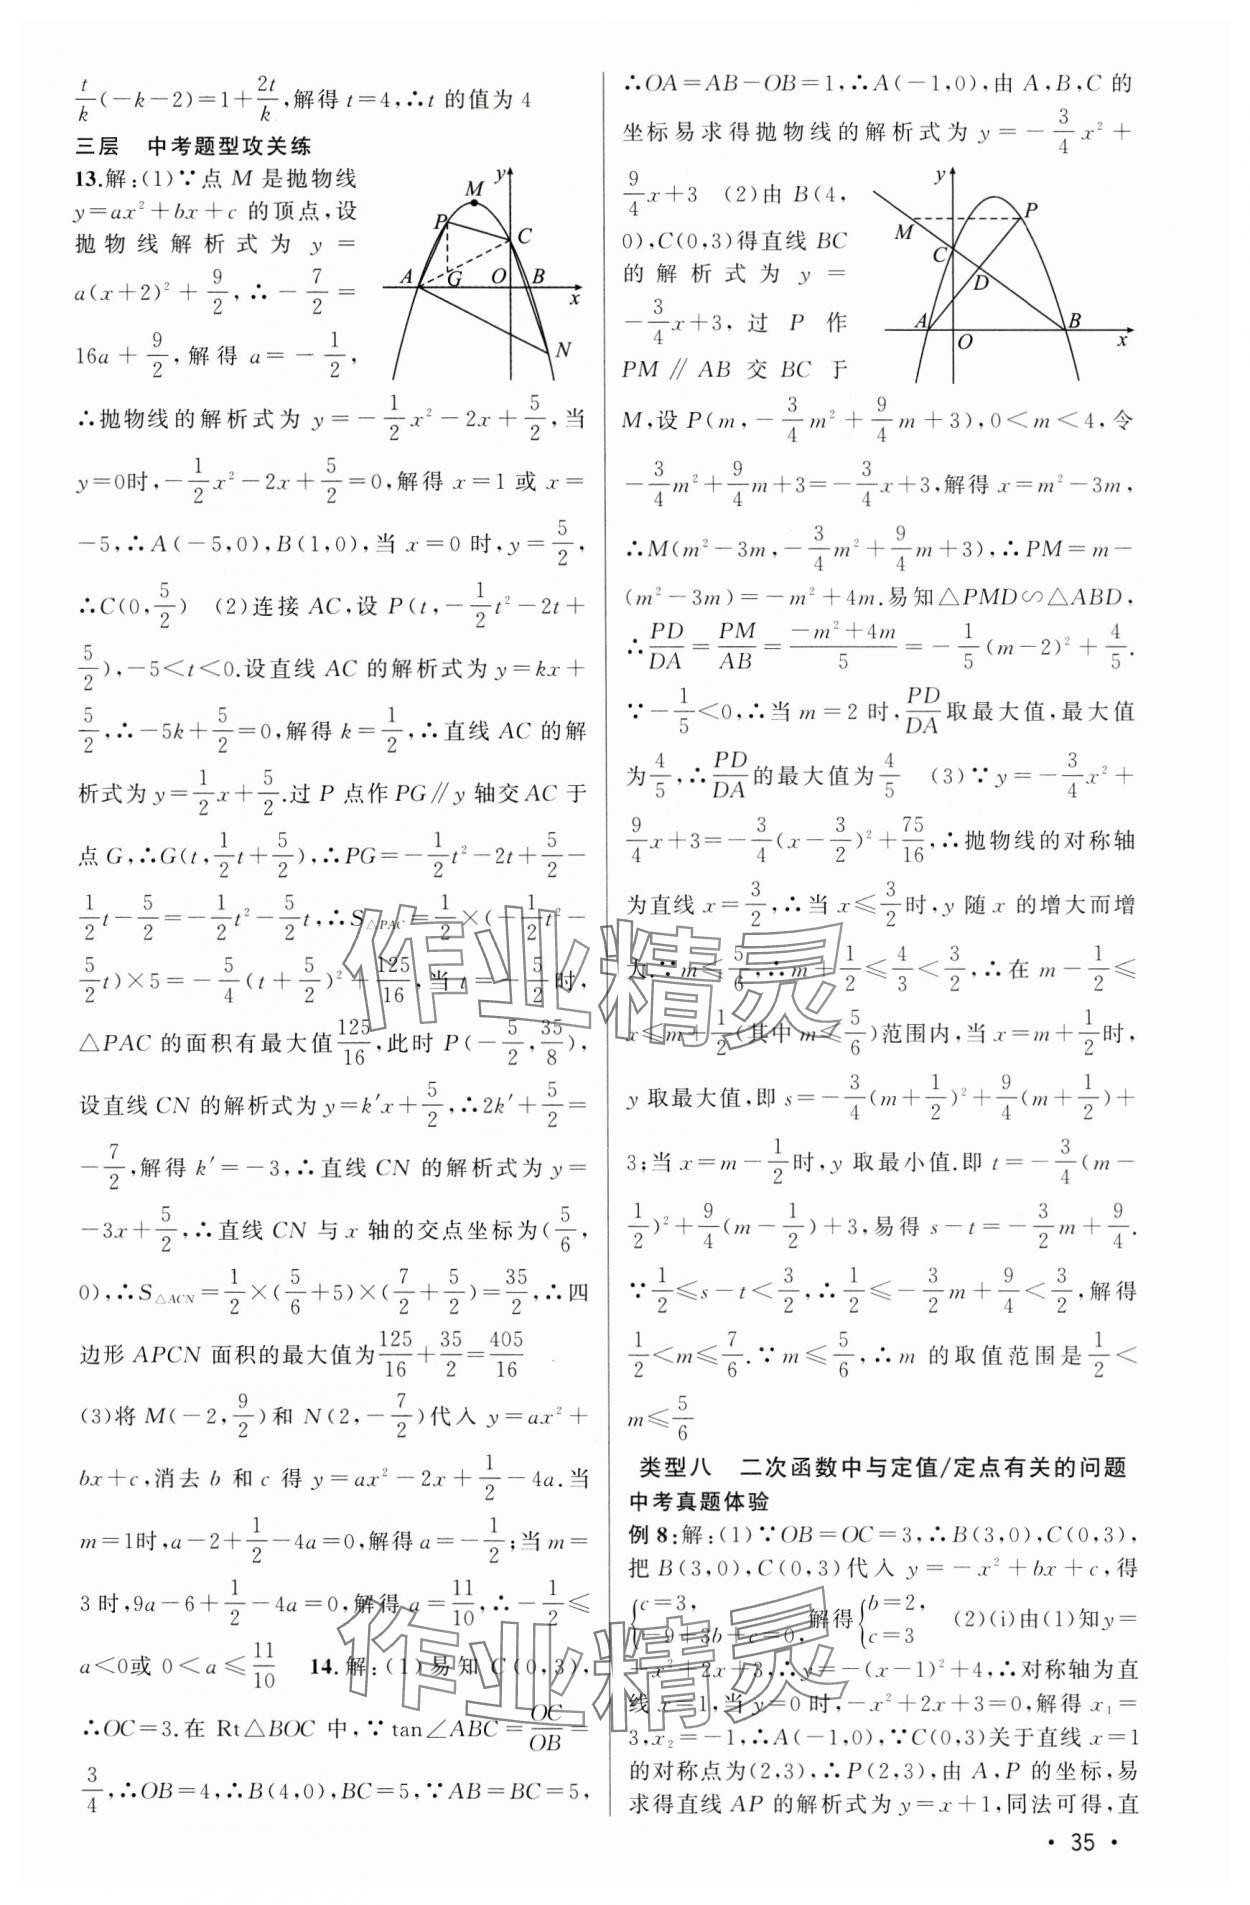 t/k(-k-2)=1+2t/k,解得 t=4,∴t 的值为 4
三层 中考题型攻关练
13.解:(1)∵点 M 是抛物线
y=ax²+bx+c 的顶点,设
抛物线解析式为 y=
a(x+2)²+9/2,∴-7/2=
16a+9/2,解得 a=-1/2,
∴抛物线的解析式为 y=-1/2x²-2x+5/2,当
y=0时,-1/2x²-2x+5/2=0,解得 x=1 或 x=
-5,∴A(-5,0),B(1,0),当 x=0 时,y=5/2,
∴C(0,5/2) (2)连接 AC,设 P(t,-1/2t²-2t+
5/2),-5<t<0.设直线 AC 的解析式为 y=kx+
5/2,∴-5k+5/2=0,解得 k=1/2,∴直线 AC 的解
析式为 y=1/2x+5/2.过 P 点作 PG∥y 轴交 AC 于
点 G,∴G(t,1/2t+5/2),∴PG=-1/2t²-2t+5/2-
1/2t-5/2=-1/2t²-5/2t,∴S△PAC=1/2×(-1/2t²-
5/2t)×5=-5/4(t+5/2)²+125/16,当 t=-5/2时,
△PAC 的面积有最大值125/16,此时 P(-5/2,35/8),
设直线 CN 的解析式为 y=k′x+5/2,∴2k′+5/2=
-7/2,解得 k′=-3,∴直线 CN 的解析式为 y=
-3x+5/2,∴直线 CN 与 x 轴的交点坐标为(5/6,
0),∴S△ACN=1/2×(5/6+5)×(7/2+5/2)=35/2,∴四
边形 APCN 面积的最大值为125/16+35/2=405/16
(3)将 M(-2,9/2)和 N(2,-7/2)代入 y=ax²+
bx+c,消去 b 和 c 得 y=ax²-2x+1/2-4a.当
m=1时,a-2+1/2-4a=0,解得 a=-1/2;当 m=
3 时,9a-6+1/2-4a=0,解得 a=11/10,∴-1/2≤
a<0或 0<a≤11/10 14.解:(1)易知 C(0,3),
∴OC=3.在 Rt△BOC 中,∵tan∠ABC=OC/OB=
3/4,∴OB=4,∴B(4,0),BC=5,∵AB=BC=5,
M
y
P
C
A
G
O
B
x
N
∴OA=AB-OB=1,∴A(-1,0),由 A,B,C 的
坐标易求得抛物线的解析式为 y=-3/4x²+
9/4x+3 (2)由 B(4,
0),C(0,3)得直线 BC
的解析式为 y=
-3/4x+3,过 P 作
PM∥AB 交 BC 于
M,设 P(m,-3/4m²+9/4m+3),0<m<4,令
-3/4m²+9/4m+3=-3/4x+3,解得 x=m²-3m,
∴M(m²-3m,-3/4m²+9/4m+3),∴PM=m-
(m²-3m)=-m²+4m.易知△PMD∽△ABD,
∴PD/DA=PM/AB=(-m²+4m)/5=-1/5(m-2)²+4/5.
∵-1/5<0,∴当 m=2 时,PD/DA取最大值,最大值
为4/5,∴PD/DA的最大值为4/5 (3)∵y=-3/4x²+
9/4x+3=-3/4(x-3/2)²+75/16,∴抛物线的对称轴
为直线 x=3/2,∴当 x≤3/2时,y 随 x 的增大而增
大.∵m≤5/6,∴m+1/2≤4/3<3/2,∴在 m-1/2≤
x≤m+1/2(其中 m≤5/6)范围内,当 x=m+1/2时,
y 取最大值,即 s=-3/4(m+1/2)²+9/4(m+1/2)+
3;当 x=m-1/2时,y 取最小值.即 t=-3/4(m-
1/2)²+9/4(m-1/2)+3,易得 s-t=-3/2m+9/4.
∵1/2≤s-t<3/2,∴1/2≤-3/2m+9/4<3/2,解得
1/2<m≤7/6.∵m≤5/6,∴m 的取值范围是1/2<
m≤5/6
y
M
P
C
D
A
O
B
x
类型八 二次函数中与定值/定点有关的问题
中考真题体验
例 8:解:(1)∵OB=OC=3,∴B(3,0),C(0,3),
把 B(3,0),C(0,3)代入 y=-x²+bx+c,得
{c=3, -9+3b+c=0, 解得{b=2, c=3 (2)(i)由(1)知 y=
-x²+2x+3,∴y=-(x-1)²+4,∴对称轴为直
线 x=1,当 y=0 时,-x²+2x+3=0,解得 x₁=
3,x₂=-1,∴A(-1,0),∵C(0,3)关于直线 x=1
的对称点为(2,3),∴P(2,3),由 A,P 的坐标,易
求得直线 AP 的解析式为 y=x+1,同法可得,直
· 35 ·
作业精灵
作业精灵